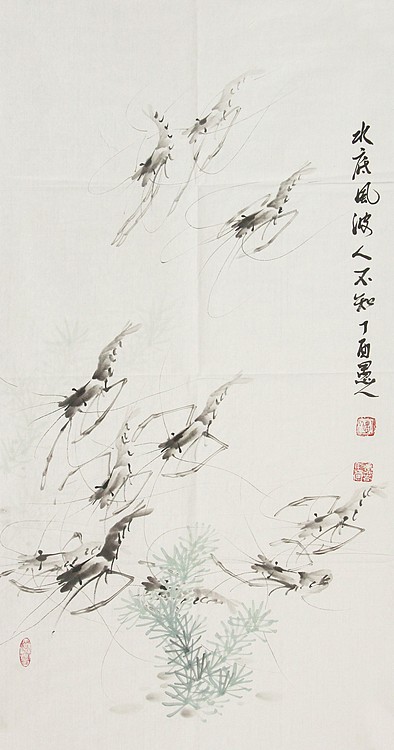 水底風波人不知丁酉墨人